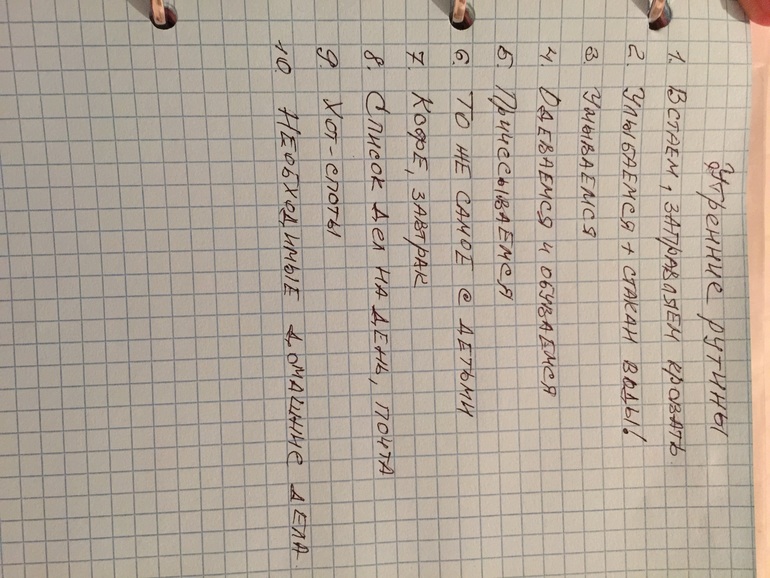 Утренние рутины
1. Встаем, заправляем кровать.
2. Улыбаемся + стакан воды!
3. Умываемся
4. Одеваемся и обуваемся
5. Причесываемся
6. То же самое с детьми
7. Кофе, завтрак
8. Список дел на день, почта
9. Хот-споты
10. Необходимые домашние дела.